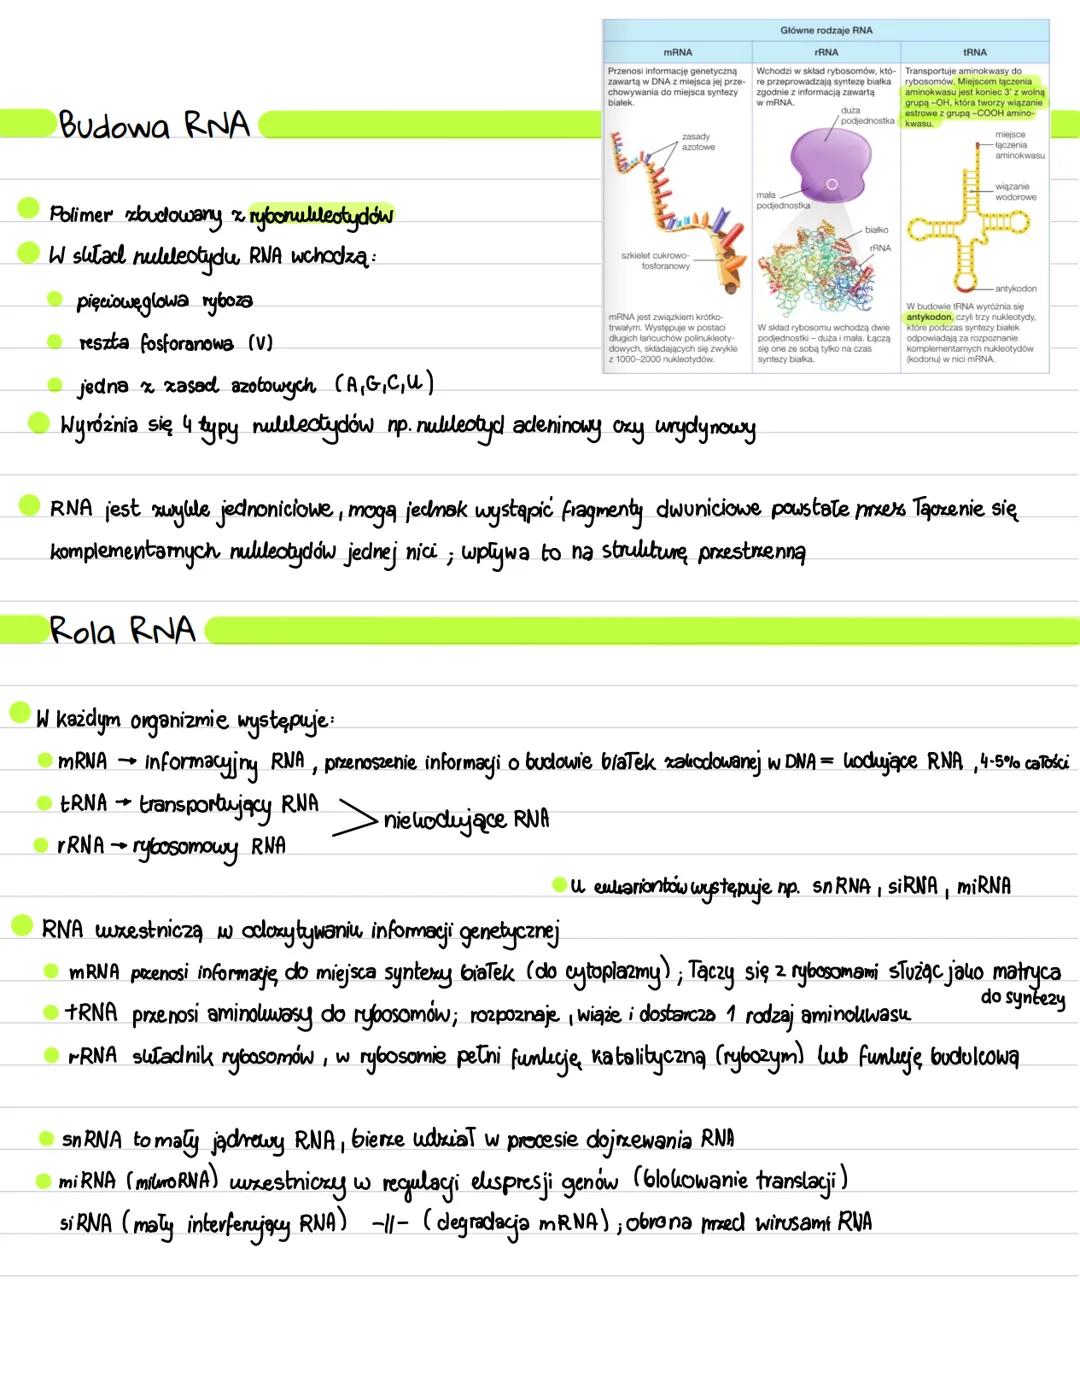 Główne rodzaje RNA
mRNA
Przenosi informację genetyczną
zawartą w DNA z miejsca jej prze-
chowywania do miejsca syntezy
białek.
zasady
azotowe
szkielet cukrowo-
fosforanowy
mRNA jest związkiem krótko-
trwałym. Występuje w postaci
długich łańcuchów polinukleoty-
dowych, składających się zwykle
z 1000–2000 nukleotydów.
rRNA
Wchodzi w skład rybosomów, któ-
re przeprowadzają syntezę białka
zgodnie z informacją zawartą
w mRNA.
duża
podjednostka
mała
podjednostka
białko
rRNA
W skład rybosomu wchodzą dwie
podjednostki – duża i mała. Łączą
się one ze sobą tylko na czas
syntezy białka.
tRNA
Transportuje aminokwasy do
rybosomów. Miejscem łączenia
aminokwasu jest koniec 3' z wolną
grupą –OH, która tworzy wiązanie
estrowe z grupą –COOH amino-
kwasu.
miejsce
łączenia
aminokwasu
wiązanie
wodorowe
antykodon
W budowie tRNA wyróżnia się
antykodon, czyli trzy nukleotydy,
które podczas syntezy białek
odpowiadają za rozpoznanie
komplementarnych nukleotydów
(kodonu) w nici mRNA.
Budowa RNA
Polimer zbudowany z rybonukleotydów
W skład nukleotydu RNA wchodzą:
pięciowęglowa ryboza
reszta fosforanowa (V)
jedna z zasad azotowych (A,G,C,U)
Wyróżnia się 4 typy nukleotydów np. nukleotyd adeninowy czy urydynowy
RNA jest zwykle jednoniciowe, mogą jednak wystąpić fragmenty dwuniciowe powstałe przez łączenie się
komplementarnych nukleotydów jednej nici; wpływa to na strukturę przestrzenną
Rola RNA
W każdym organizmie występuje:
mRNA → informacyjny RNA, przenoszenie informacji o budowie białek zakodowanej w DNA = kodujące RNA, 4-5% całości
tRNA → transportujący RNA
rRNA → rybosomowy RNA
> niekodujące RNA
u eukariontów występuje np. snRNA, siRNA, miRNA
RNA uczestniczą w odczytywaniu informacji genetycznej
mRNA przenosi informację do miejsca syntezy białek (do cytoplazmy); łączy się z rybosomami służąc jako matryca
do syntezy
tRNA przenosi aminokwasy do rybosomów; rozpoznaje, wiąże i dostarcza 1 rodzaj aminokwasu
rRNA składnik rybosomów, w rybosomie pełni funkcję katalityczną (rybozym) lub funkcję budulcową
snRNA to mały jądrowy RNA, bierze udział w procesie dojrzewania RNA
miRNA (mikroRNA) uczestniczy w regulacji ekspresji genów (blokowanie translacji)
siRNA (mały interferujący RNA) -||- (degradacja mRNA); obrona przed wirusami RNA